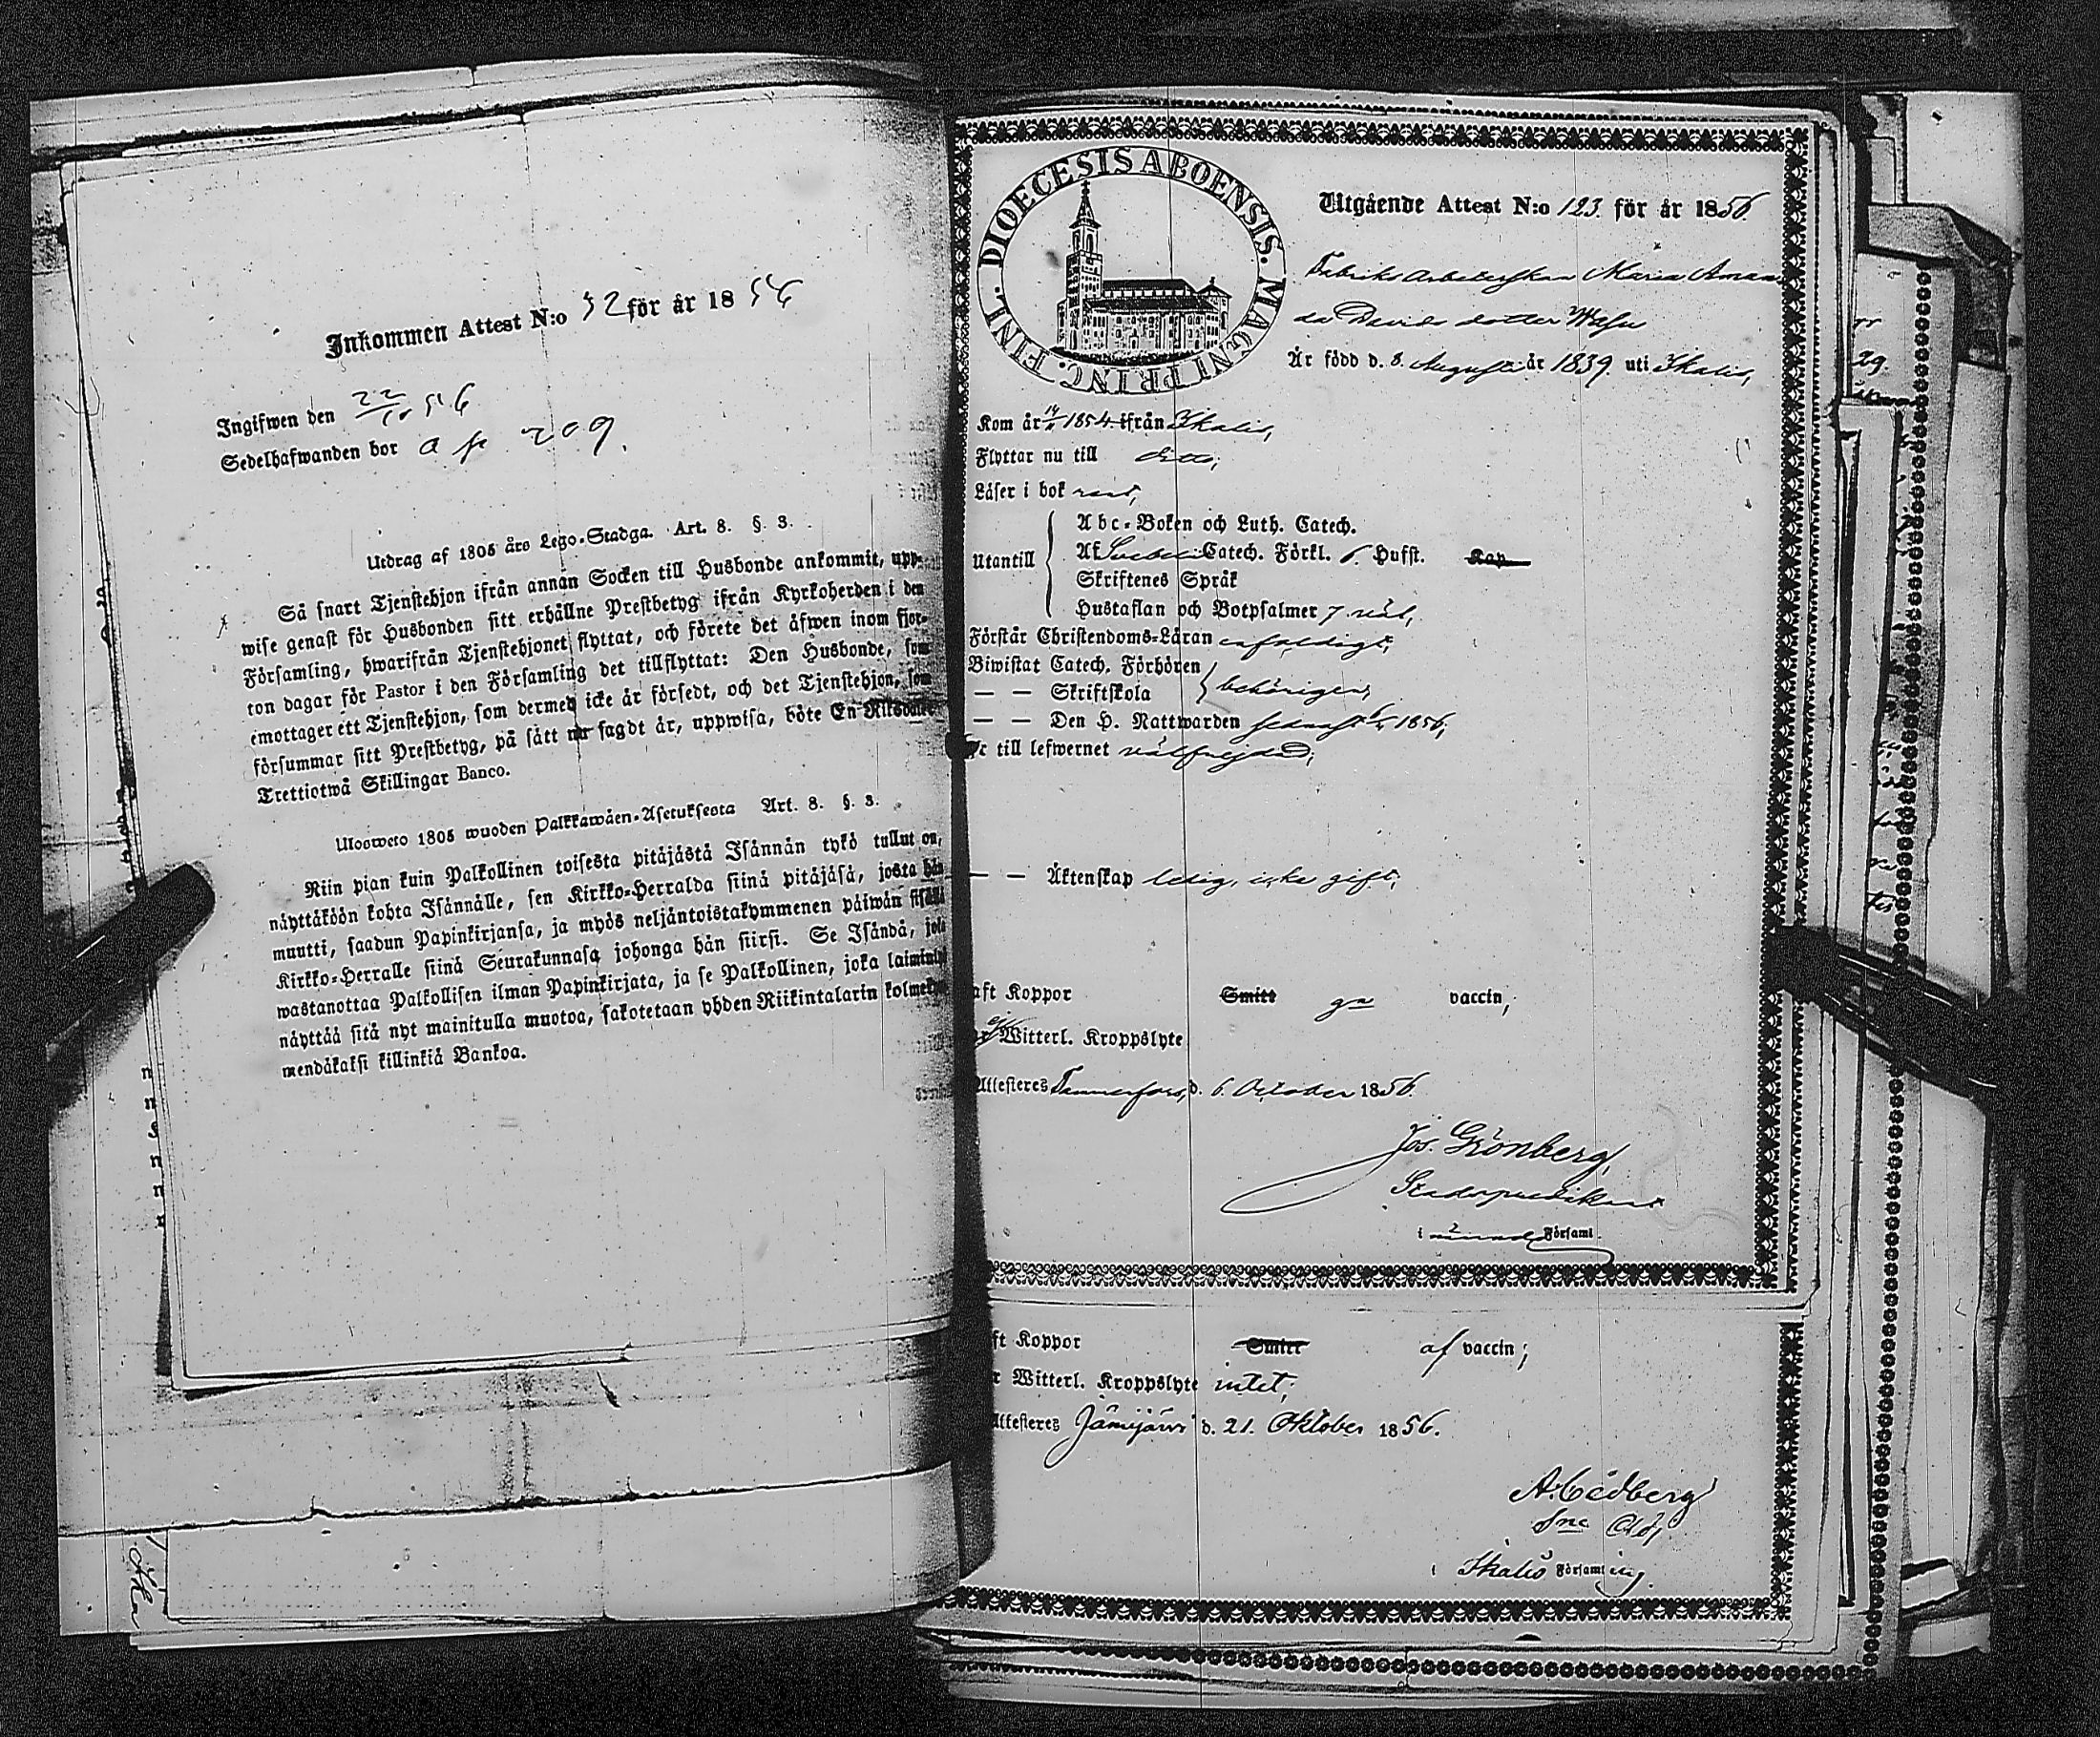 Inkommen Attest N:o 52 för år 1856
Ingifwen den 22/10 56
Sedelhafwanden bor a p 209.
Utdrag af 1805 års Lego-Stadga. Art. 8. §. 3.
Så snart Tjenstehjon ifrån annan Socken till Husbonde ankommit, upp-
wise genast för Husbonden sitt erhållne Prestbetyg ifrån Kyrkoherden i den
Församling, hwarifrån Tjenstehjonet flyttat, och förete det äfwen inom fjor-
ton dagar för Pastor i den Församling det tillflyttat: Den Husbonde, som
emottager ett Tjenstehjon, som dermed icke är försedt, och det Tjenstehjon, som
försummar sitt Prestbetyg, på sätt nu sagdt är, uppwisa, böte En Riksdaler
Trettiotwå Skillingar Banco.
Ulosweto 1805 wuoden Palkkawäen-Asetuksesta Art. 8. §. 3.
Niin pian kuin Palkollinen toisesta pitäjästä Isännän tykö tullut on,
näyttäköön kohta Isännälle, sen Kirkko-Herralda siinä pitäjäsä, josta hän
muutti, saadun Papinkirjansa, ja myös neljäntoistakymmenen päiwän sisällä
Kirkko-Herralle siinä Seurakunnasa johonga hän siirsi. Se Isändä, joka
wastanottaa Palkollisen ilman Papinkirjata, ja se Palkollinen, joka
näyttää sitä nyt mainitulla muotoa, sakotetaan yhden Riikintalarin
mendäkaksi killinkiä Bankoa.
DIOECESIS ABOENSIS. MAGNI PRINC. FINL.
Utgående Attest N:o 123. för år 1856.
Fabriks arbeterskan Maria Aman
da Davids dotter
Är född d. 8. Augusti år 1839. uti Ikalis,
Kom år 1854. ifrån Ikalis,
Flyttar nu till ditto,
Läser i bok rent,
Utantill
Abc-Boken och Luth. Catech.
Af Svebelii Catech. Förkl. 6. Hufst. Kap
Skriftenes Språk
Hustaflan och Botpsalmer 7. nöd,
Förstår Christendoms-Läran enfaldigt,
Biwistat Catech. Förhören
— — Skriftskola behörigen,
— — Den H. Nattwarden sednast 1856,
Är till lefwernet välfrejdad;
— — Äktenskap ledig, icke gift,
aft Koppor Smitt vaccin,
Witterl. Kroppslyte
Attesteres Tammerfors, d. 6. October 1856.
Jos. Grönberg,
Stadspredikant
i nämnde Församl.
ft Koppor Smitt af vaccin;
r Witterl. Kroppslyte intet;
Attesteres Jämijärvi d. 21. Oktober 1856.
A. Cedberg
Sne Adj.
i Ikalis Församling.